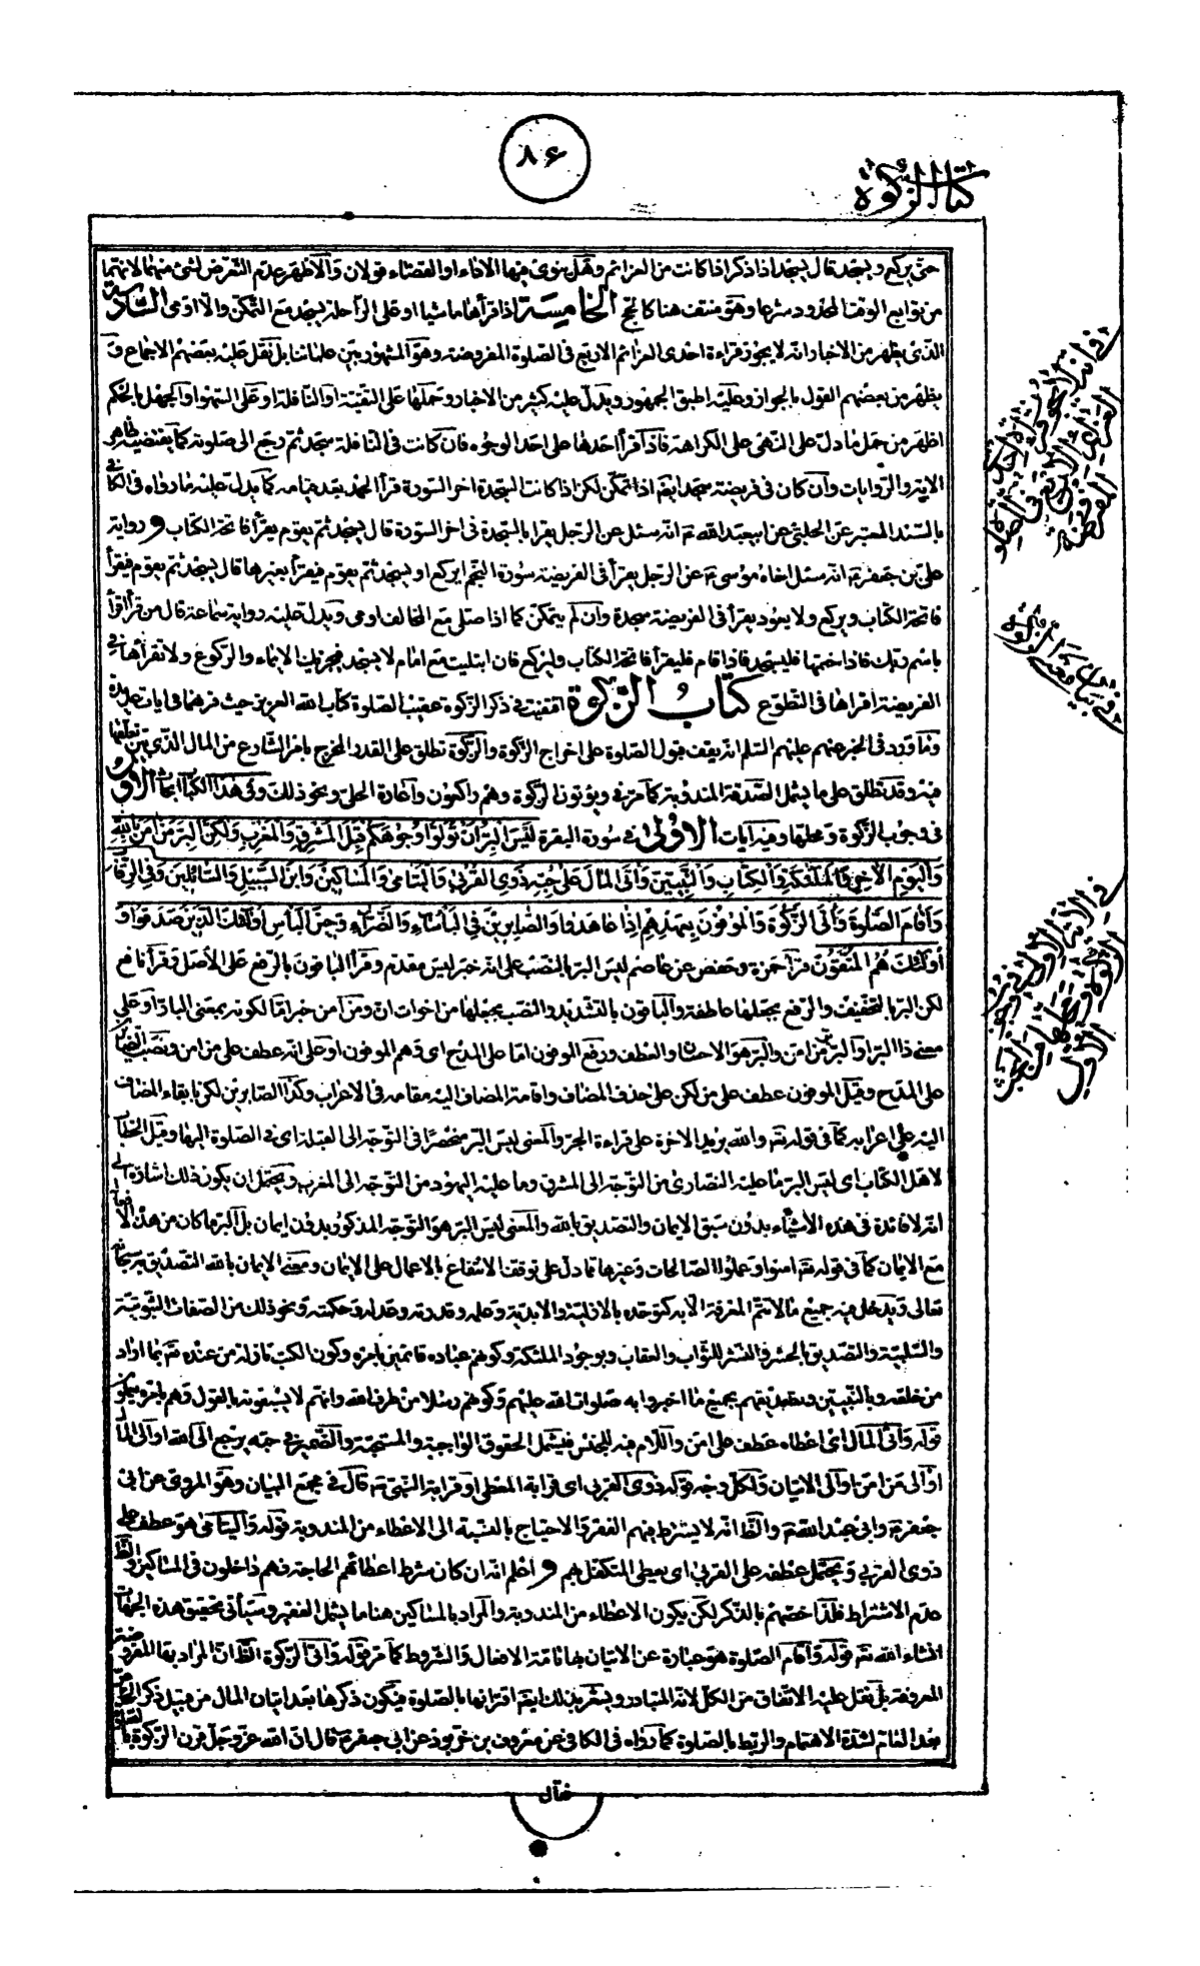 ٨۶
كتاب الزكوة
حتى يركع ويسجد قال يسجد اذا ذكر اذا كانت من العزائم وهل ينوى فيها الاداء او القضاء قولان والاظهر عدم التعرض لشئ منهما لانهما
من توابع الوقت المحدود شرعا وهو منتف هنا كالحج الخامسة اذا قرأها ماشيا او على الراحلة يسجد مع التمكن والا اومى السادسة
الذى يظهر من الاخبار انه لا يجوز قراءة احدى العزائم الاربع فى الصلوة المفروضة وهو المشهور بين علمائنا بل نقل عليه بعضهم الاجماع و
يظهر من بعضهم القول بالجواز وعليه اطبق الجمهور ويدل عليه كثير من الاخبار وحملها على التقية او النافلة او على السهو او الجهل بالحكم
اظهر من حمل ما دل على النهى على الكراهة فاذا قرأ احدها على احد الوجوه فان كانت فى النافلة سجد ثم رجع الى صلوته كما يقتضيه ظاهر
الاية والروايات وان كان فى فريضة سجد ايضم اذا تمكن لكن اذا كانت السجدة اخر السورة قرأ الحمد بعد قيامه كما يدل عليه ما رواه فى الكافى
بالسند المعتبر عن الحلبى عن ابيعبد الله ع انه سئل عن الرجل يقرأ بالسجدة فى اخر السورة قال يسجد ثم يقوم يقرأ فاتحة الكتاب و رواية
على بن جعفر ع انه سئل اخاه موسى ع عن الرجل يقرأ فى الفريضة سورة النجم ايركع او يسجد ثم يقوم فيقرأ بغيرها قال يسجد ثم يقوم فيقرأ
فاتحة الكتاب ويركع ولا يعود يقرأ فى الفريضة سجدة وان لم يتمكن كما اذا صلى مع المخالف اومى ويدل عليه رواية سماعة قال من قرأ اقرأ
باسم ربك فاذا ختمها فليسجد فاذا قام فليقرأ فاتحة الكتاب وليركع فان ابتليت مع امام لا يسجد فيجزيك الايماء والركوع ولا تقرأها فى
الفريضة اقرأها فى التطوع كتاب الزكوة اقتفيت فى ذكر الزكوة عقيب الصلوة كتاب الله العزيز حيث قرنهما فى ايات عديدة
وما ورد فى الخبر عنهم عليهم السلم انه يقف قبول الصلوة على اخراج الزكوة والزكوة تطلق على القدر المخرج بامر الشارع من المال الذى بين تعلقها
فيه وقد تطلق على ما يشمل الصدقة المندوبة كما مر فى ويؤتون الزكوة وهم راكعون واعارة الحلى ونحو ذلك وفى هذا الكتاب ابحاث الاول
فى وجوب الزكوة ومحلها وفيه ايات الاولى فى سورة البقرة ليس البر ان تولوا وجوهكم قبل المشرق والمغرب ولكن البر من امن بالله
واليوم الاخر والملئكة والكتاب والنبيين واتى المال على حبه ذوى القربى واليتامى والمساكين وابن السبيل والسائلين وفى الرقاب
واقام الصلوة واتى الزكوة والموفون بعهدهم اذا عاهدوا والصابرين فى البأساء والضراء وحين البأس اولئك الذين صدقوا و
اولئك هم المتقون قرأ حمزة وحفص عن عاصم ليس البر بالنصب على انه خبر ليس مقدم وقرأ الباقون بالرفع على الاصل وقرأ نافع
لكن البر بالتخفيف والرفع بجعلها عاطفة والباقون بالتشديد والنصب بجعلها من اخوات ان ومن امن خبر اما لكونه بمعنى البار او على
معنى ذا البر او البر بر من امن والبر هو الاحسان والعطف ورفع الموفون اما على المدح اى وهم الموفون او على انه عطف على من امن ونصب الصابرين
على المدح وقيل الموفون عطف على من لكن على حذف المضاف واقامة المضاف اليه مقامه فى الاعراب وكذا الصابرين لكن بابقاء المضاف
اليه على اعرابه كما فى قوله تع والله يريد الاخرة على قراءة الجر والمعنى ليس البر منحصرا فى التوجه الى القبلة اى فى الصلوة اليها وقيل الخطاب
لاهل الكتاب اى ليس البر ما عليه النصارى من التوجه الى المشرق وما عليه اليهود من التوجه الى المغرب ويحتمل ان يكون ذلك اشارة الى
انه لا فائدة فى هذه الاشياء بدون سبق الايمان والتصديق بالله والمعنى ليس البر هو التوجه المذكور بدون ايمان بل البر ما كان من هذه الافعال
مع الايمان كما فى قوله تع امنوا وعملوا الصالحات وغيرها مما دل على توقف الانتفاع بالاعمال على الايمان ومعنى الايمان بالله التصديق به سبحانه
تعالى ويدخل فيه جميع ما لا تتم المعرفة الا به كتوحده بالازلية والابدية وعلمه وقدرته وعدله وحكمته ونحو ذلك من الصفات الثبوتية
والسلبية والتصديق بالحشر والنشر للثواب والعقاب وبوجود الملئكة وكونهم عباده قائمين بامره وكون الكتب نازلة من عنده تع بما اراد
من خلقه وبالنبيين وتصديقهم بجميع ما اخبروا به صلوات الله عليهم وكونهم رسلا من طرف الله وانهم لا يسبقونه بالقول وهم بامره يعملون
قوله واتى المال اى اعطاه عطف على امن واللام فيه للجنس فيشمل الحقوق الواجبة والمستحبة والضمير فى حبه يرجع الى الله او الى المال
او الى من امن او الى الاتيان ولكل وجه قوله ذوى القربى اى قرابة المعطى او قرابة النبى ص قال فى مجمع البيان وهو المروى عن ابى
جعفر ع وابى عبد الله ع والظ انه لا يشترط فيهم الفقر والاحتياج بالنسبة الى الاعطاء من المندوبة قوله واليتامى هو عطف على
ذوى القربى ويحتمل عطفه على القربى اى يعطى المتكفل بهم و اعلم انه ان كان شرط اعطائهم الحاجة فهم داخلون فى المساكين والظ
عدم الاشتراط فلذا خصهم بالذكر لكن يكون الاعطاء من المندوبة والمراد بالمساكين هنا ما يشمل الفقير وسيأتى تحقيق هذه الجهات
انشاء الله تع قوله واقام الصلوة هو عبارة عن الاتيان بها تامة الافعال والشروط كما مر قوله واتى الزكوة الظ ان المراد بها المفروضة
المعروفة بل نقل عليه الاتفاق من الكل لانه المتبادر ويشعر بذلك ايضم اقترانها بالصلوة فيكون ذكرها بعد ايتان المال من قبيل ذكر الخاص
بعد العام لشدة الاهتمام والربط بالصلوة كما رواه فى الكافى عن معروف بن خربوذ عن ابى جعفر ع قال ان الله عز وجل قرن الزكوة بالصلوة
فقال
فى انه لا يجوز قراءة احدى
العزائم الاربع فى الصلوة
المفروضة
فى بيان معنى الزكوة
فى الاية الاولى فى وجوب
الزكوة ومحلها من البحث
الاول